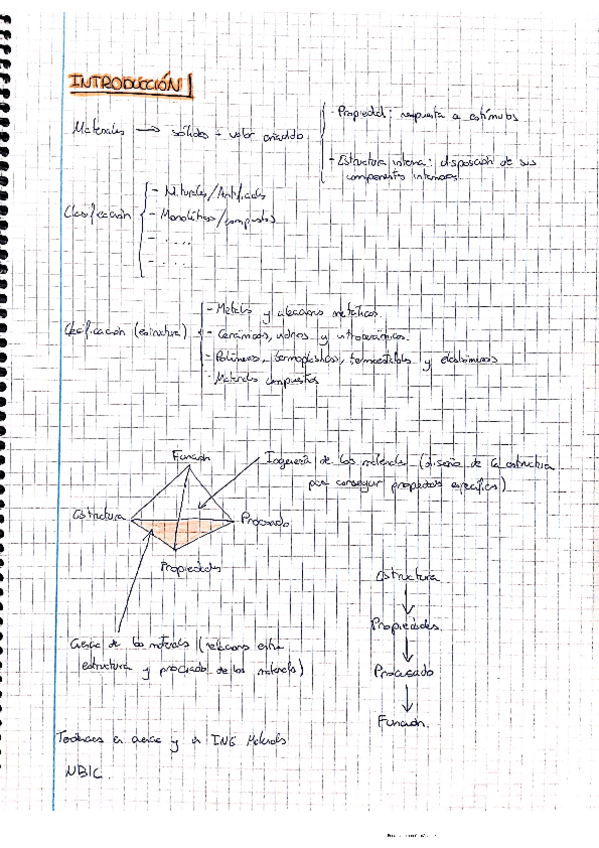 INTRODUCCIÓN
Materiales → sólidos + valor añadido
- Propiedad: respuesta a estímulos
- Estructura interna: disposición de sus
componentes internos.
Clasificación
- Naturales/Artificiales
- Monolíticos/compuestos
- ....
- ....
Clasificación (estructura)
- Metales y aleaciones metálicas.
- Cerámicos, vidrios y vitrocerámicos.
- Polímeros, termoplásticos, termoestables y elastómeros
- Materiales compuestos
Función
Ingeniería de los materiales (diseño de la estructura
para conseguir propiedades específicas)
Estructura
Procesado
Propiedades
Estructura
Propiedades
Procesado
Función.
Ciencia de los materiales (relaciones entre
estructura y procesado de los materiales)
en ciencia y en ING Materiales
NBIC.